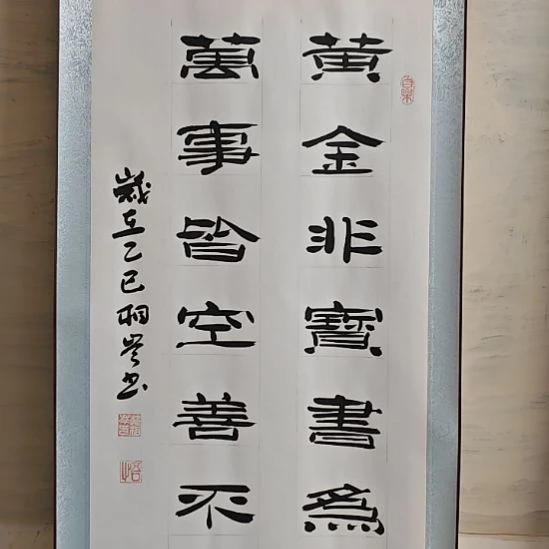 黄金非寶書為
萬事皆空善不
歲在乙巳相誉書